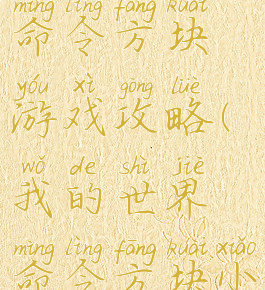 mìng lìng fāng kuài
命令方块
yóu xì gōng lüè
游戏攻略(
wǒ de shì jiè
我的世界
mìng lìng fāng kuài xiǎo
命令方块小